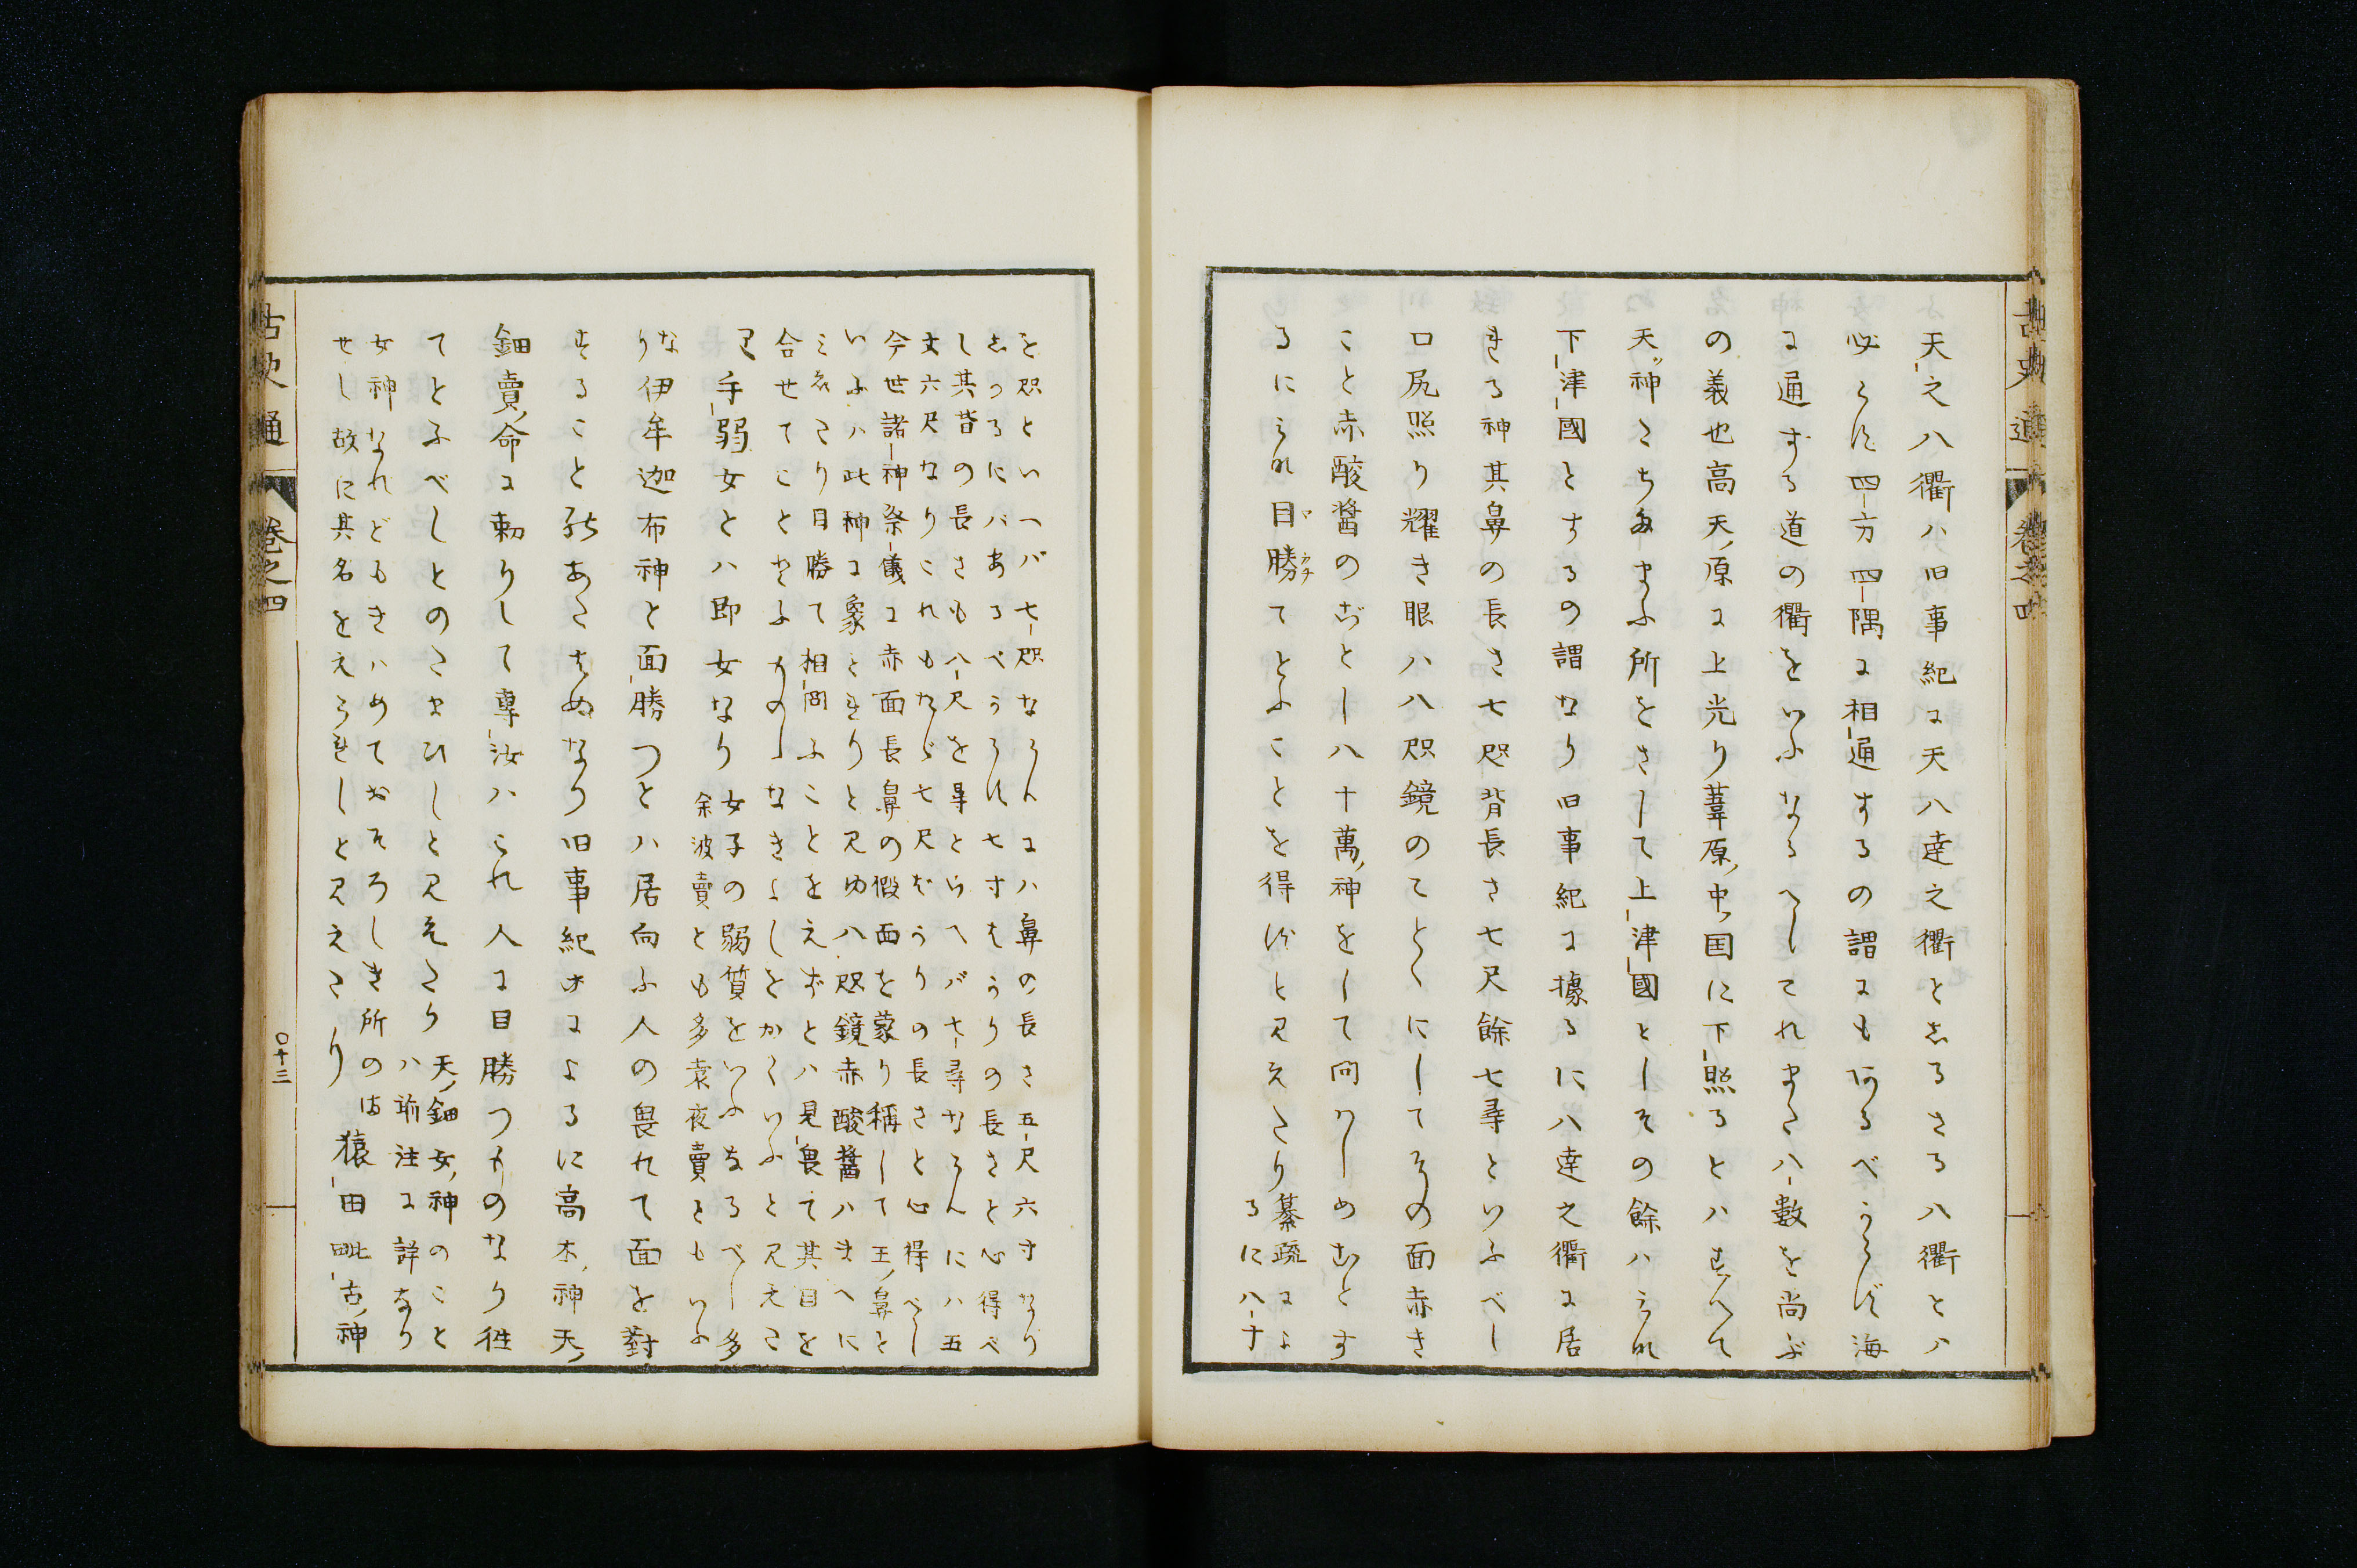 古史通 卷之四
天之八衢ハ旧事紀に天八達之衢としるさる八衢とハ
必しも四方四隅に相通するの謂にも何るべからず海
に通ずる道の衢をいふなるへしこれまた八数を尚ぶ
の義也高天原に上光り葦原中国に下照るとハすへて
天神たちたまふ所をさして上津國としその餘ハこれ
下津國とするの謂なり旧事紀に據るに八達之衢に居
れる神其鼻の長さ七咫背長さ七尺餘七尋といふべし
口尻照り耀き眼ハ八咫鏡のことくにしてその面赤き
こと赤酸醬のごとし八十萬神をして問ハしめむとす
るにこれ目勝てとふことを得ずと見えたり
纂疏による に八十
を咫といへバ七咫ならんにハ鼻の長さ五尺六寸なり
しかるにバあるべからず七寸はかりの長さと心得べ
し其背の長さも八尺を尋といへバ七尋ならんにハ五
丈六尺なりこれもたゞ七尺ばかりの長さと心得べし
今世諸神祭儀に赤面長鼻の假面を蒙り稱して王鼻と
いふハ此神に象とれりと見ゆ八咫鏡赤酸醬ハまへに
ミえたり目勝て相問ふことをえずとハ見畏て其目を
合せてことゝふものゝなきよしをかくいふと見えた
り 手弱女とハ即女なり
女子の弱質をいふなるべし多
余波賣とも多袁夜賣ともいふ
なり伊牟迦布神と面勝つとハ居向ふ人の畏れて面を對
することあたはぬなり旧事紀によるに高木神天
鈿賣命に勅りして專汝ハこれ人に目勝つものなり往
てとふべしとのたまひしと見えたり
天鈿女神のこと
ハ前注に詳なり
女神なれどもきハめておそろしき所の
せし故に其名をえられしと見えたり
猿田毗古神
古史通 卷之四
〇十三